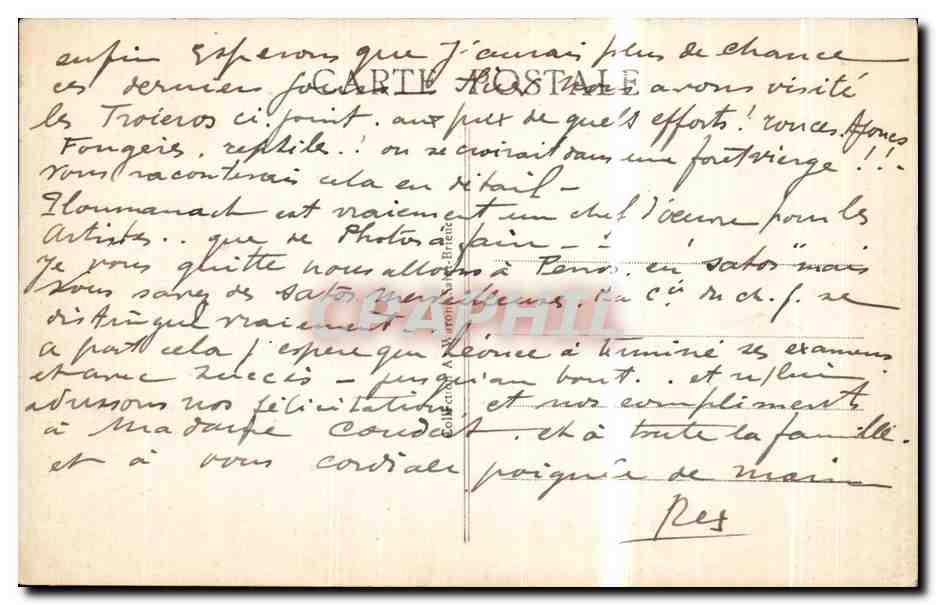 enfin Esperons que j'aurai plus de chance
CARTE POSTALE
ces derniers jours Hier nous avons visité
les Troïeros ci-joint. aux prix de quels efforts! ronces Ajoncs
Fougères, reptiles..! on se croirait dans une foret vierge!!!
Vous raconterais cela en détail -
Ploumanach est vraiement un chef d'œuvre pour les
Artistes.. que de Photos à faire -
Je vous quitte nous allons à Perros. en "satos" mais
vous savez des satos merveilleuses, la Cie du ch. f. se
distingue vraiement
a part cela j'espere que Léonce à terminé ses examens
et avec succès - jusqu'au bout.. et
adressons nos félicitations, et nos compliments
à Madame Coudert. et à toute la famille.
et à vous cordiale poignée de main
Rex
Collection A. Waron, Saint-Brieuc
CPAPHIL